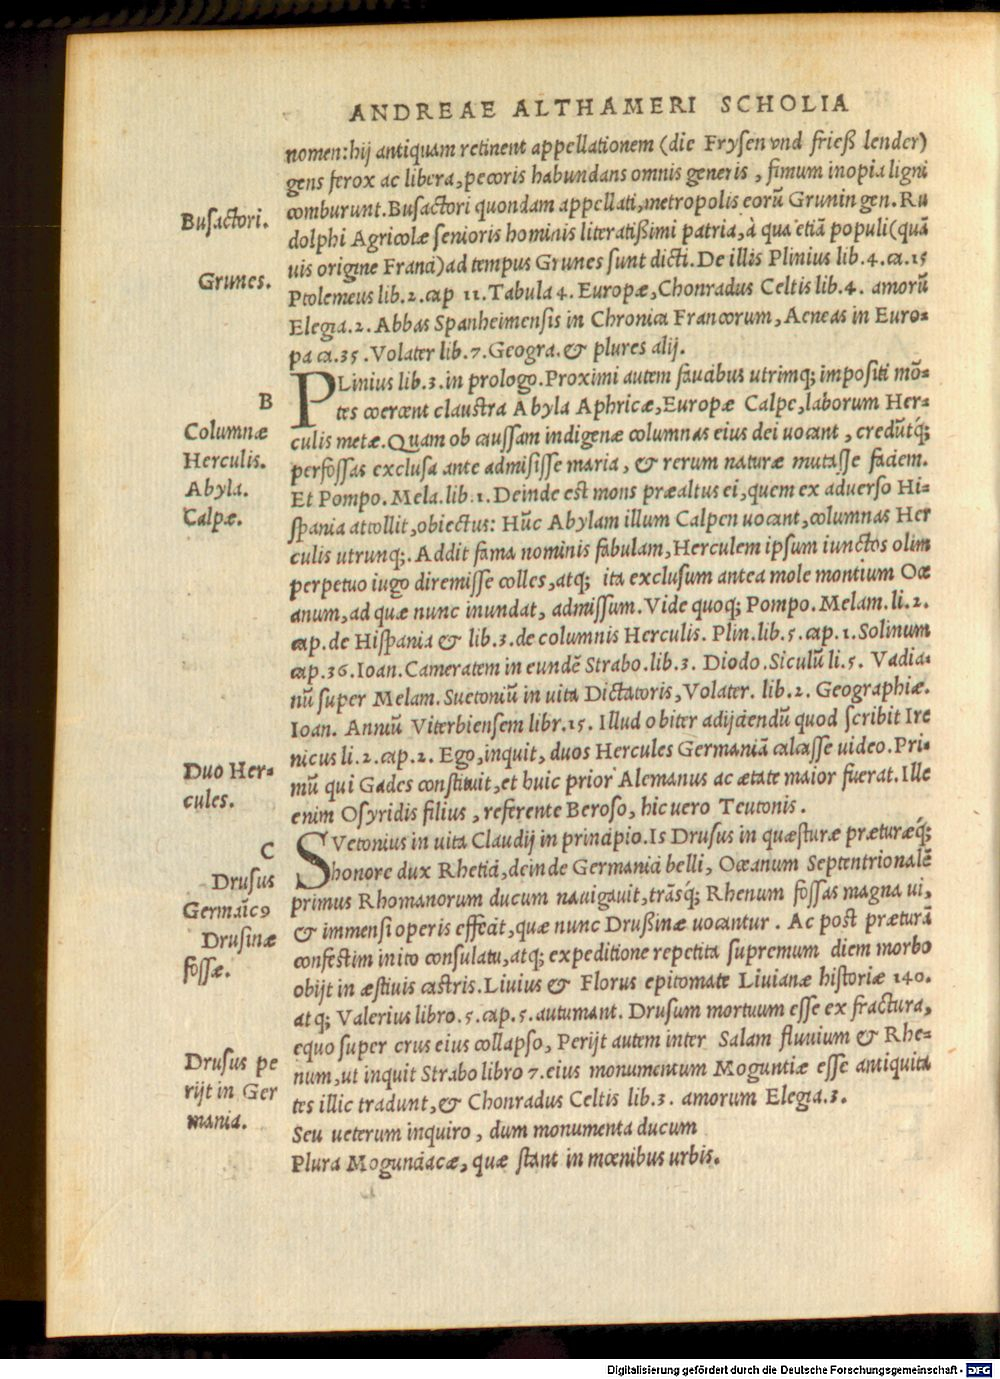 ANDREAE ALTHAMERI SCHOLIA
nomen: hij antiquam retinent appellationem (die Frysen vnd frieß lender)
gens ferox ac libera, pecoris habundans omnis generis, fimum inopia ligni
comburunt. Busactori quondam appellati, metropolis eorū Gruningen. Ru
dolphi Agricolæ senioris hominis literatißimi patria, à qua etiā populi (quā
uis origine Franci) ad tempus Grunes sunt dicti. De illis Plinius lib. 4. ca. 15
Ptolemeus lib. 2. cap 11. Tabula 4. Europæ, Chonradus Celtis lib. 4. amorū
Elegia. 2. Abbas Spanheimensis in Chronica Francorum, Aeneas in Euro-
pa ca. 35. Volater lib. 7. Geogra. & plures alij.
PLinius lib. 3. in prologo. Proximi autem faucibus utrimq; impositi mō-
tes coercent claustra Abyla Aphricæ, Europæ Calpe, laborum Her-
culis metæ. Quam ob caussam indigenæ columnas eius dei uocant, credūtq́;
perfossas exclusa ante admisisse maria, & rerum naturæ mutasse faciem.
Et Pompo. Mela. lib. 1. Deinde est mons præaltus ei, quem ex aduerso Hi-
spania attollit, obiectus: Hūc Abylam illum Calpen uocant, columnas Her
culis utrunq;. Addit fama nominis fabulam, Herculem ipsum iunctos olim
perpetuo iugo diremisse colles, atq; ita exclusum antea mole montium Oce
anum, ad quæ nunc inundat, admissum. Vide quoq; Pompo. Melam. li. 2.
cap. de Hispania & lib. 3. de columnis Herculis. Plin. lib. 5. cap. 1. Solinum
cap. 36. Ioan. Camertem in eundē Strabo. lib. 3. Diodo. Siculū li. 5. Vadia-
nū super Melam. Suetoniū in uita Dictatoris, Volater. lib. 2. Geographiæ.
Ioan. Anniū Viterbiensem libr. 15. Illud obiter adijciendū quod scribit Ire
nicus li. 2. cap. 2. Ego, inquit, duos Hercules Germaniā calcasse uideo. Pri-
mū qui Gades constituit, et huic prior Alemanus ac ætate maior fuerat. Ille
enim Osyridis filius, referente Beroso, hic uero Teutonis.
SVetonius in uita Claudij in principio. Is Drusus in quæsturæ præturæq́;
honore dux Rhetici, deinde Germanici belli, Oceanum Septentrionalē
primus Rhomanorum ducum nauigauit, trāsq́; Rhenum fossas magna ui,
& immensi operis effecit, quæ nunc Drußinæ uocantur. Ac post præturā
confestim inito consulatu, atq; expeditione repetita supremum diem morbo
obijt in æstiuis castris. Liuius & Florus epitomate Liuianæ historiæ 140.
atq; Valerius libro. 5. cap. 5. autumant. Drusum mortuum esse ex fractura,
equo super crus eius collapso, Perijt autem inter Salam fluuium & Rhe-
num, ut inquit Strabo libro 7. eius monumentum Moguntiæ esse antiquita
tes illic tradunt, & Chonradus Celtis lib. 3. amorum Elegia. 3.
Seu ueterum inquiro, dum monumenta ducum
Plura Mogunciacæ, quæ stant in mœnibus urbis.
Busactori.
Grunes.
B
Columnæ
Herculis.
Abyla.
Calpæ.
Duo Her-
cules.
C
Drusus
Germāicꝰ
Drusinæ
fossæ.
Drusus pe
rijt in Ger
mania.
Digitalisierung gefördert durch die Deutsche Forschungsgemeinschaft - DFG